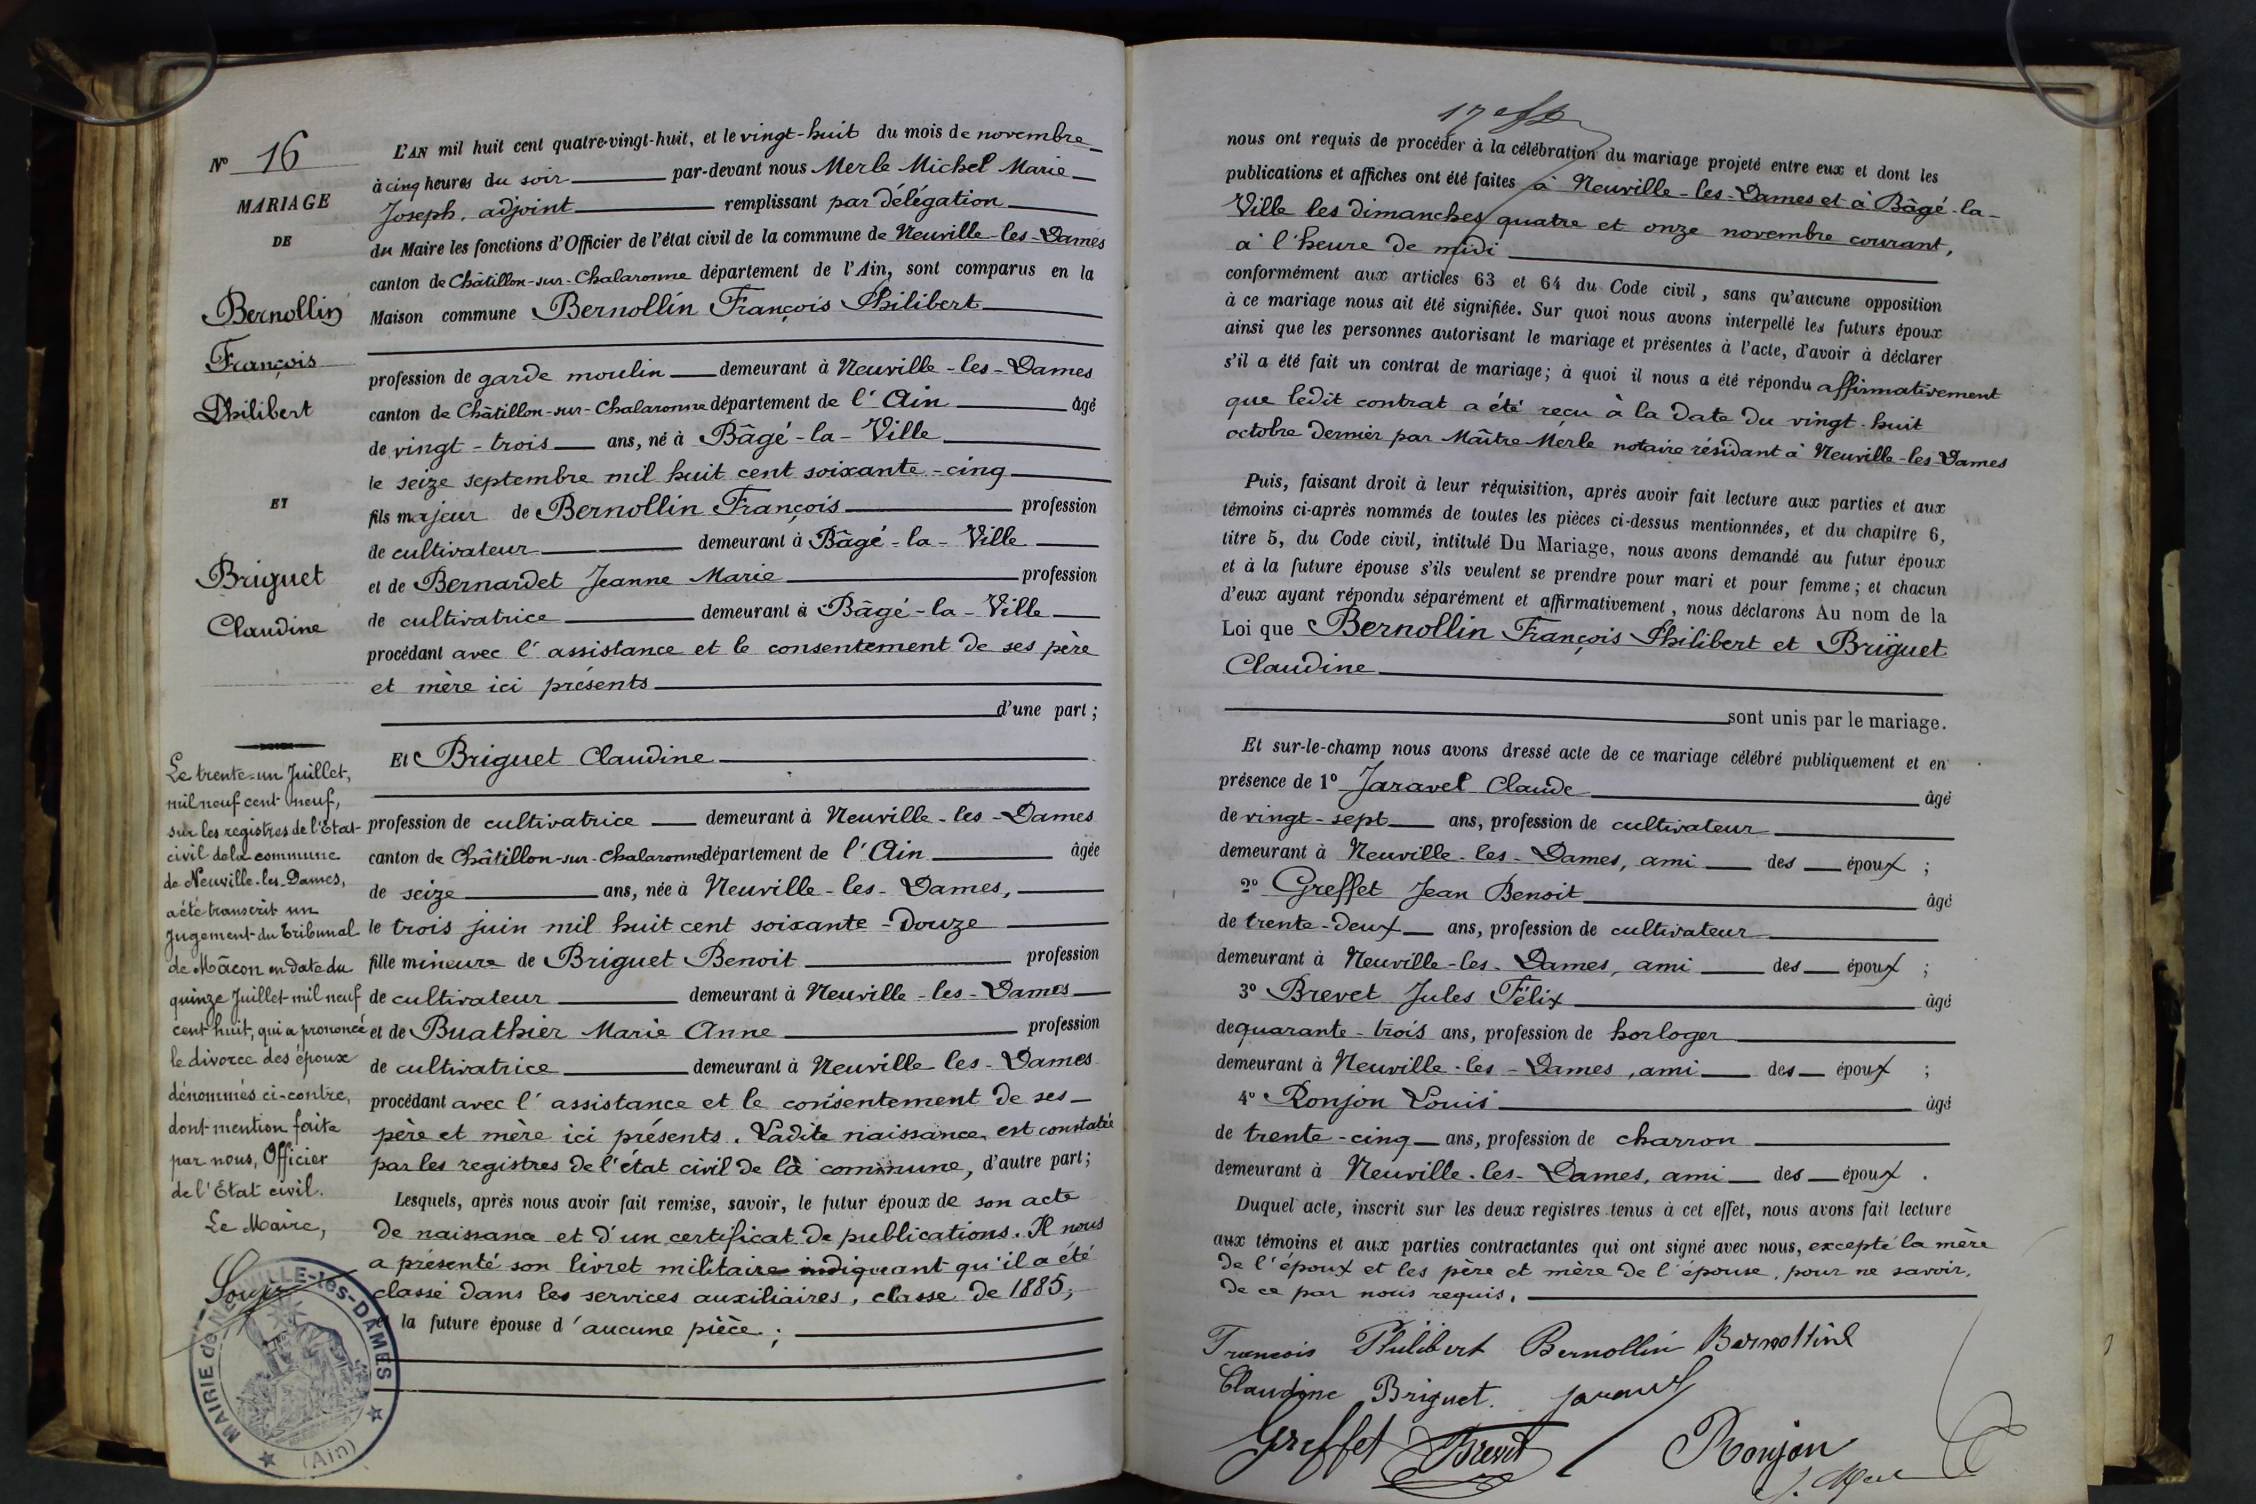 N° 16
MARIAGE
DE
Bernollin
François
Philibert
ET
Briguet
Claudine
Le trente-un Juillet,
mil neuf cent neuf,
sur les registres de l'Etat-
civil de la commune
de Neuville-les-Dames,
a été transcrit un
Jugement du Tribunal
de Mâcon en date du
quinze Juillet mil neuf
cent huit, qui a prononcé
le divorce des époux
dénommés ci-contre,
dont mention faite
par nous, Officier
de l'Etat civil.
Le Maire,
MAIRIE de NEUVILLE-les-DAMES
(Ain)
L'AN mil huit cent quatre-vingt-huit, et le vingt-huit du mois de novembre
à cinq heures du soir par-devant nous Merle Michel Marie
Joseph, adjoint remplissant par délégation
du Maire les fonctions d'Officier de l'état civil de la commune de Neuville-les-Dames
canton de Châtillon-sur-Chalaronne département de l'Ain, sont comparus en la
Maison commune Bernollin François Philibert
profession de garde moulin demeurant à Neuville-les-Dames
canton de Châtillon-sur-Chalaronne département de l'Ain âgé
de vingt-trois ans, né à Bâgé-la-Ville
le seize septembre mil huit cent soixante-cinq
fils majeur de Bernollin François profession
de cultivateur demeurant à Bâgé-la-Ville
et de Bernardet Jeanne Marie profession
de cultivatrice demeurant à Bâgé-la-Ville
procédant avec l'assistance et le consentement de ses père
et mère ici présents
d'une part;
Et Briguet Claudine
profession de cultivatrice demeurant à Neuville-les-Dames
canton de Châtillon-sur-Chalaronne département de l'Ain âgée
de seize ans, née à Neuville-les-Dames,
le trois juin mil huit cent soixante-douze
fille mineure de Briguet Benoit profession
de cultivateur demeurant à Neuville-les-Dames
et de Buathier Marie Anne profession
de cultivatrice demeurant à Neuville les-Dames
procédant avec l'assistance et le consentement de ses
père et mère ici présents. Ladite naissance est constatée
par les registres de l'état civil de la commune, d'autre part;
Lesquels, après nous avoir fait remise, savoir, le futur époux de son acte
de naissance et d'un certificat de publications. Il nous
a présenté son livret militaire indiquant qu'il a été
classé dans les services auxiliaires, classe de 1885;
et la future épouse d'aucune pièce;
nous ont requis de procéder à la célébration du mariage projeté entre eux et dont les
publications et affiches ont été faites à Neuville-les-Dames et à Bâgé-la-
Ville les dimanches quatre et onze novembre courant,
à l'heure de midi
conformément aux articles 63 et 64 du Code civil, sans qu'aucune opposition
à ce mariage nous ait été signifiée. Sur quoi nous avons interpellé les futurs époux
ainsi que les personnes autorisant le mariage et présentes à l'acte, d'avoir à déclarer
s'il a été fait un contrat de mariage; à quoi il nous a été répondu affirmativement
que ledit contrat a été reçu à la date du vingt-huit
octobre dernier par Maître Merle notaire résidant à Neuville-les-Dames
Puis, faisant droit à leur réquisition, après avoir fait lecture aux parties et aux
témoins ci-après nommés de toutes les pièces ci-dessus mentionnées, et du chapitre 6,
titre 5, du Code civil, intitulé Du Mariage, nous avons demandé au futur époux
et à la future épouse s'ils veulent se prendre pour mari et pour femme; et chacun
d'eux ayant répondu séparément et affirmativement, nous déclarons Au nom de la
Loi que Bernollin François Philibert et Briguet
Claudine
sont unis par le mariage.
Et sur-le-champ nous avons dressé acte de ce mariage célébré publiquement et en
présence de 1° Jaravel Claude âgé
de vingt-sept ans, profession de cultivateur
demeurant à Neuville-les-Dames, ami des époux ;
2° Greffet Jean Benoit âgé
de trente-deux ans, profession de cultivateur
demeurant à Neuville-les-Dames, ami des époux ;
3° Brevet Jules Félix âgé
de quarante-trois ans, profession de horloger
demeurant à Neuville-les-Dames, ami des époux ;
4° Ronjon Louis âgé
de trente-cinq ans, profession de charron
demeurant à Neuville-les-Dames, ami des époux.
Duquel acte, inscrit sur les deux registres tenus à cet effet, nous avons fait lecture
aux témoins et aux parties contractantes qui ont signé avec nous, excepté la mère
de l'époux et les père et mère de l'épouse, pour ne savoir,
de ce par nous requis.
François Philibert Bernollin Bernollin
Claudine Briguet. Jaravel
Greffet Brevet Ronjon